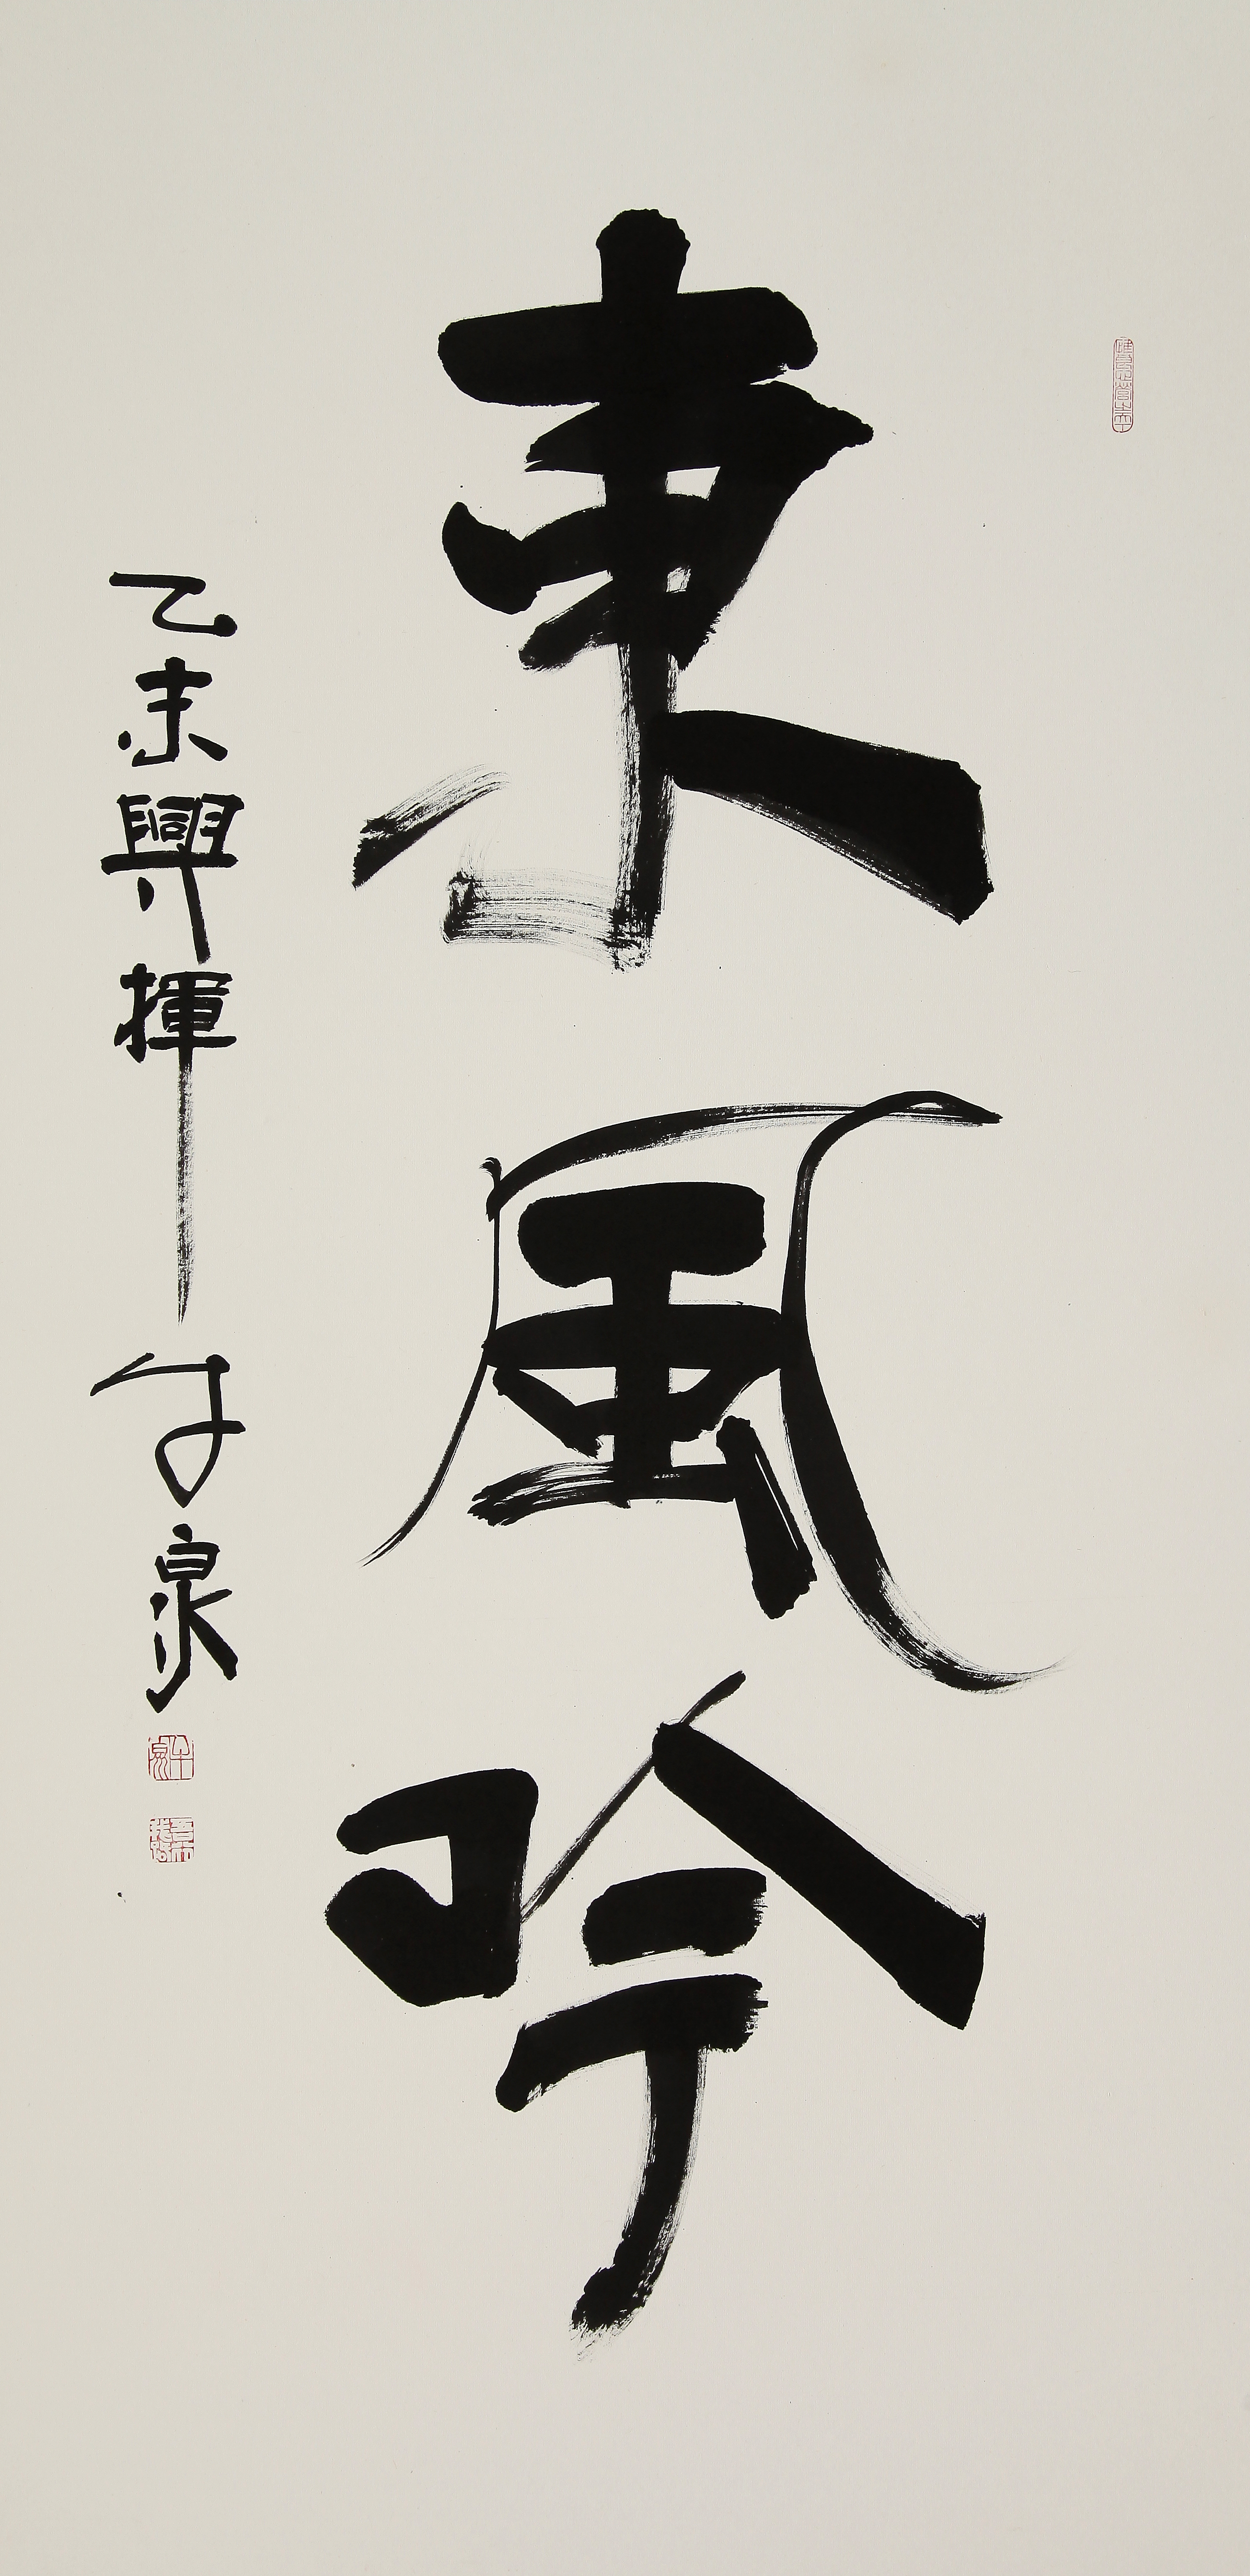 東風吟
乙未興揮午泉